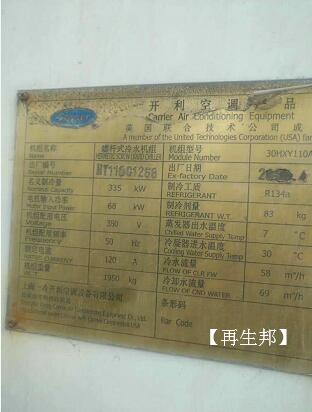 Carrier
开利空调产品
Carrier Air Conditioning Equipment
美国联合技术公司成
A member of the United Technologies Corporation (USA) fa
机组名称 螺杆式冷水机组 机组型号 30HXY110A
Name HERMETIC SCREW LIQUID CHILLER Module Number
出厂编号 HT11001258 出厂日期
Ex-Factory Date
名义制冷量 335 kW 制冷工质 R134a
REFRIGERANT
电机输入功率 68 kW 制冷剂量 83 kg
Motor Input Power REFRIGERANT WT
配用电压 380 V 蒸发器出水温度 7 ℃
Voltage Chilled Water Supply Temp
配用频率 50 Hz 冷凝器进水温度 30 ℃
Frequency Cooling Water Supply Temp
额定电流 120 A 冷水流量 58 m³/h
FLOW OF CLR FW
机组重量 1950 kg 冷却水流量 69 m³/h
FLOW OF CND WATER
上海一冷开利空调设备有限公司 条形码
Bar Code
【再生邦】